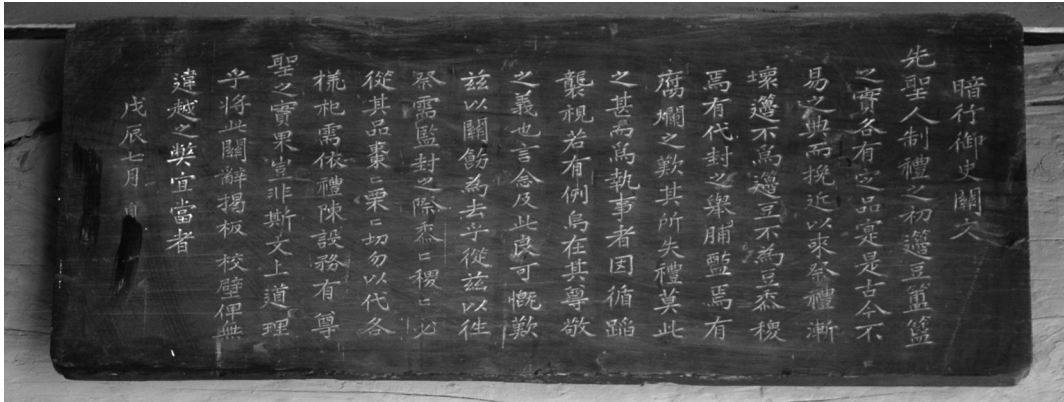 暗行御史關文
先聖人制禮之初籩豆簠簋
之實各有定品寔是古今不
易之典而挽近以來祭禮漸
壞籩不爲籩豆不爲豆黍稷
焉有代封之擧脯醢焉有
腐爛之歎其所失禮莫此
之甚而爲執事者因循蹈
襲視若有例烏在其尊敬
之義也言念及此良可慨歎
玆以關飭爲去乎從玆以往
祭需監封之際黍〻稷〻必
從其品棗〻栗〻切勿以代各
樣祀需依禮陳設務有尊
聖之實果豈非斯文上道理
乎將此關辭揭板 校壁俾無
違越之弊宜當者
戊辰七月 日